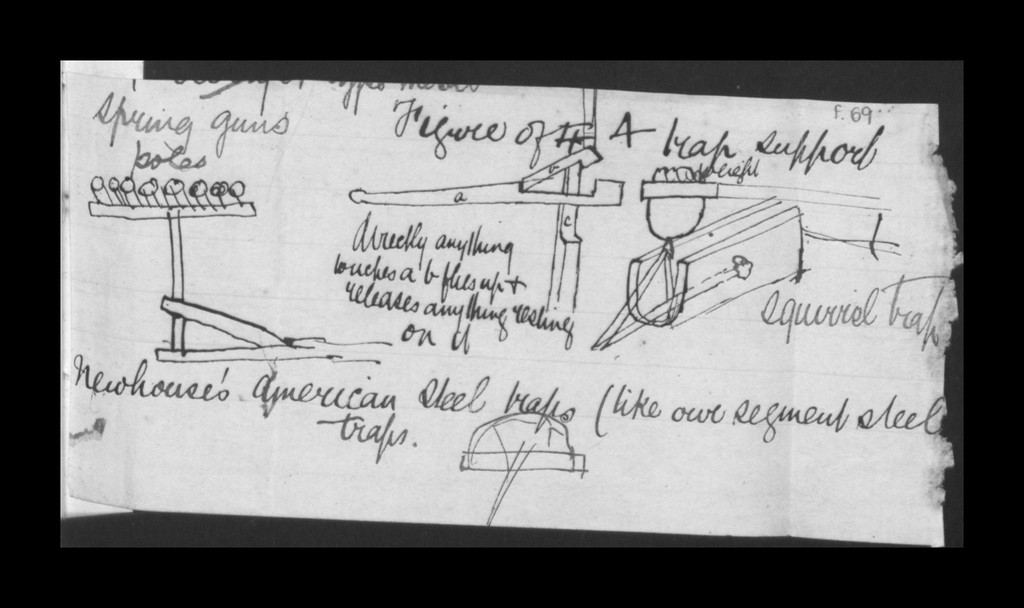 F. 69
spring guns
poles
Figure of 4 A trap support
weight
a
b
c
Directly anything
touches a b flies up +
releases anything resting
on it
squirrel trap
Newhouse's American steel traps (like our segment steel
traps.